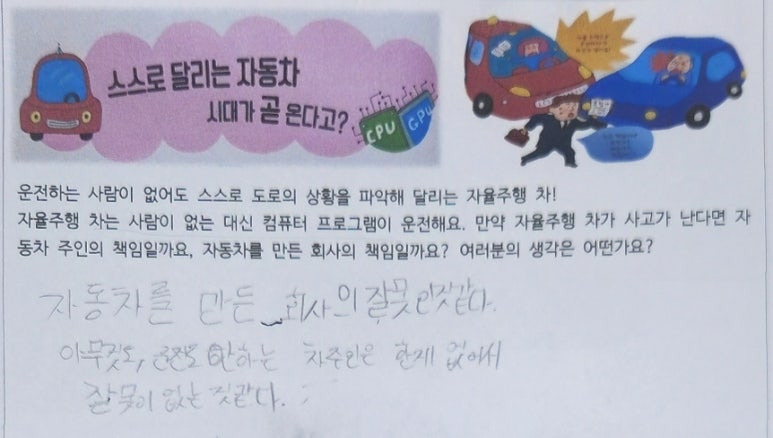 스스로 달리는 자동차
시대가 곧 온다고?
CPU
GPU
운전하는 사람이 없어도 스스로 도로의 상황을 파악해 달리는 자율주행 차!
자율주행 차는 사람이 없는 대신 컴퓨터 프로그램이 운전해요. 만약 자율주행 차가 사고가 난다면 자
동차 주인의 책임일까요, 자동차를 만든 회사의 책임일까요? 여러분의 생각은 어떤가요?
자동차를 만든 회사의 잘못인것같다.
아무것도, 안하는 차주인은 한게 없어서
잘못이 없는 것같다.